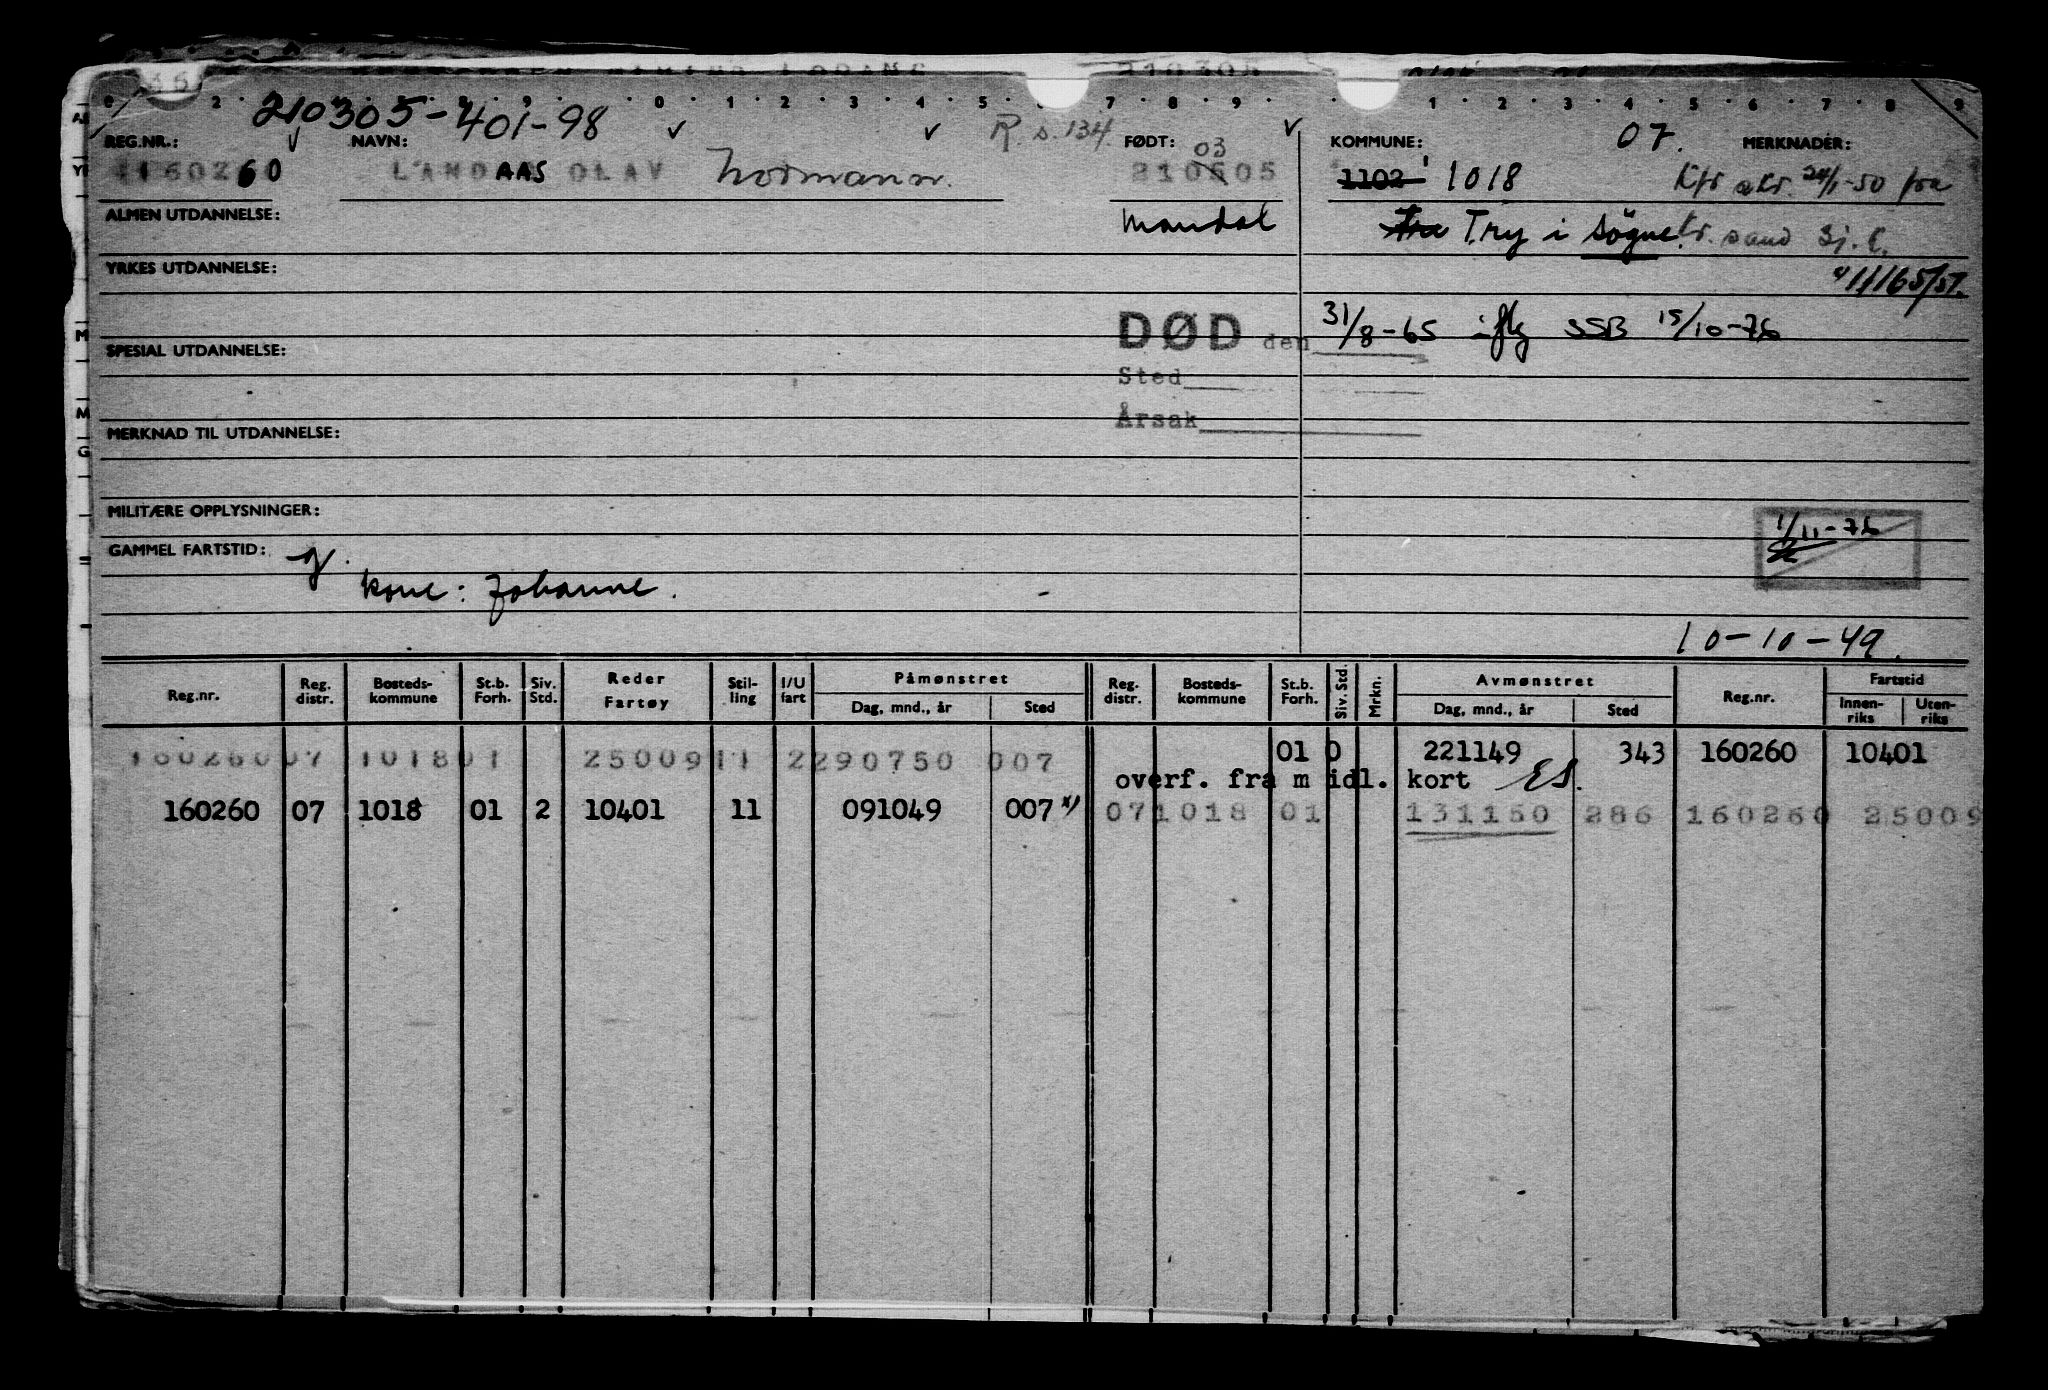 210305-401-98
R s. 134.
07.
REG.NR.: NAVN: FØDT: KOMMUNE: MERKNADER:
160260 LANDAAS OLAV Normann. 210305 1102 1018 Kfr skr. 24/1-50 fra
ALMEN UTDANNELSE: Mandal fra Try i Søgne kr. sand Sj. k.
YRKES UTDANNELSE: 41165/51.
DØD den 31/8-65 iflg SSB 15/10-76
SPESIAL UTDANNELSE:
Sted
Årsak
MERKNAD TIL UTDANNELSE:
MILITÆRE OPPLYSNINGER: 1/11-76
GAMMEL FARTSTID: g.
kone: Johanne.
10-10-49.
Reg.nr. Reg. distr. Bosteds-kommune St.b. Forh. Siv. Std. Reder Fartøy Stil-ling I/U fart Påmønstret Dag, mnd., år Sted Reg. distr. Bosteds-kommune St.b. Forh. Siv. Std. Mrkn. Avmønstret Dag, mnd., år Sted Reg.nr. Fartstid Innen-riks Uten-riks
160260 07 1018 01 25009 11 2 290750 007 01 0 221149 343 160260 10401
overf. fra midl. kort ES.
160260 07 1018 01 2 10401 11 091049 007 x) 07 1018 01 131150 286 160260 25009